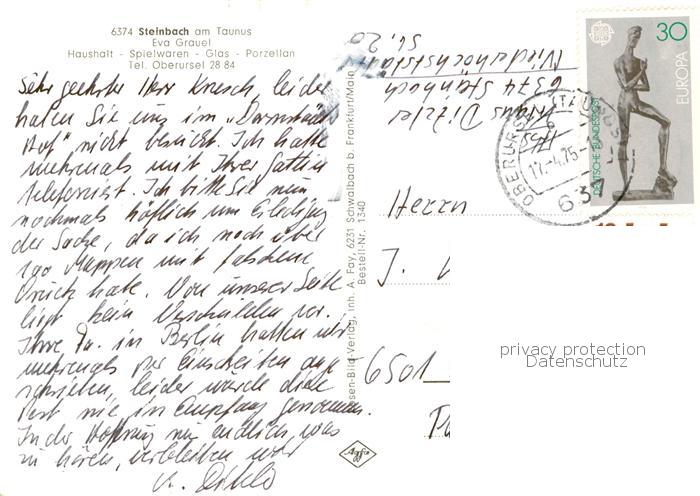 6374 Steinbach am Taunus
Eva Grauel
Haushalt - Spielwaren - Glas - Porzellan
Tel. Oberursel 28 84
Sehr geehrter Herr Knesch, leider
haben Sie uns im „Darmstädter
Hof" nicht besucht. Ich hatte
mehrmals mit Ihrer Gattin
telefoniert. Ich bitte Sie nun
nochmals höflich um Erledigung
der Sache, da ich noch über
100 Mappen mit falschem
Druck habe. Von unserer Seite
liegt kein Verschulden vor.
Ihre Fa. in Berlin hatten wir
mehrmals per Einschreiben ange-
schrieben, leider wurde diese
Post nie in Empfang genommen.
In der Hoffnung nun endlich was
zu hören, verbleiben wir
Hans Dizler
6374 Steinbach
Niederhöchststädter
Str. 20
Herrn
J.
6501
DEUTSCHE BUNDESPOST
EUROPA
30
OBERURSEL (TAUNUS)
17.-4.75
637
esen-Bild-Verlag, Inh. A. Fay, 6231 Schwalbach b. Frankfurt/Main
Bestell-Nr. 1340
Agfa
privacy protection
Datenschutz